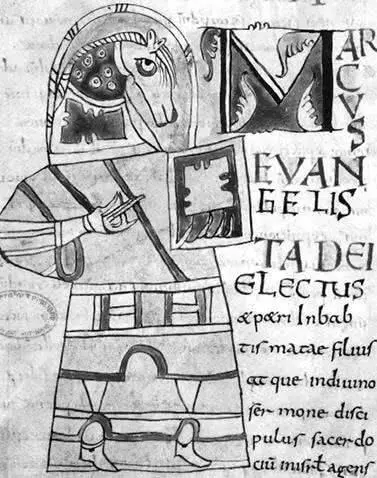 MARCVS
EVAN
GELIS
TA DEI
ELECTUS
& p&ri Inbab
tis matae filius
at que indiuino
ser mone disci
pulus sacerdo
ciū inisrł agens